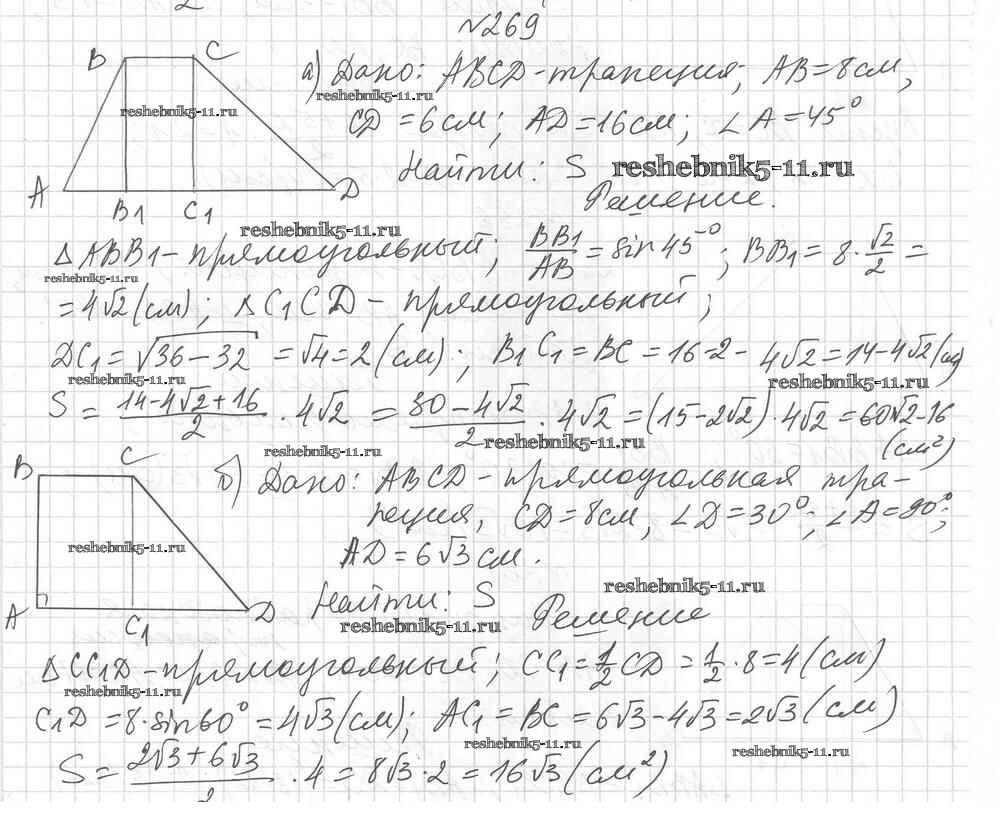 №269
B C
а) Дано: ABCD - трапеция; AB = 8 см,
reshebnik5-11.ru
reshebnik5-11.ru
CD = 6 см; AD = 16 см; ∠A = 45°
Найти: S reshebnik5-11.ru
A B1 C1 D
Решение.
reshebnik5-11.ru
△ABB1 - прямоугольный; BB1/AB = sin 45°; BB1 = 8 · √2/2 =
reshebnik5-11.ru
= 4√2 (см); △C1CD - прямоугольный;
DC1 = √(36 - 32) = √4 = 2 (см); B1C1 = BC = 16 - 2 - 4√2 = 14 - 4√2 (см)
reshebnik5-11.ru reshebnik5-11.ru
S = (14 - 4√2 + 16)/2 · 4√2 = (30 - 4√2)/2 · 4√2 = (15 - 2√2) · 4√2 = 60√2 - 16
reshebnik5-11.ru reshebnik5-11.ru
(см²)
B C
б) Дано: ABCD - прямоугольная тра-
пеция, CD = 8 см, ∠D = 30°; ∠A = 90°;
reshebnik5-11.ru
AD = 6√3 см.
reshebnik5-11.ru
Найти: S
A C1 D
reshebnik5-11.ru
Решение
△CC1D - прямоугольный; CC1 = 1/2 CD = 1/2 · 8 = 4 (см)
reshebnik5-11.ru
C1D = 8 · sin 60° = 4√3 (см); AC1 = BC = 6√3 - 4√3 = 2√3 (см)
reshebnik5-11.ru reshebnik5-11.ru
S = (2√3 + 6√3)/2 · 4 = 8√3 · 2 = 16√3 (см²)